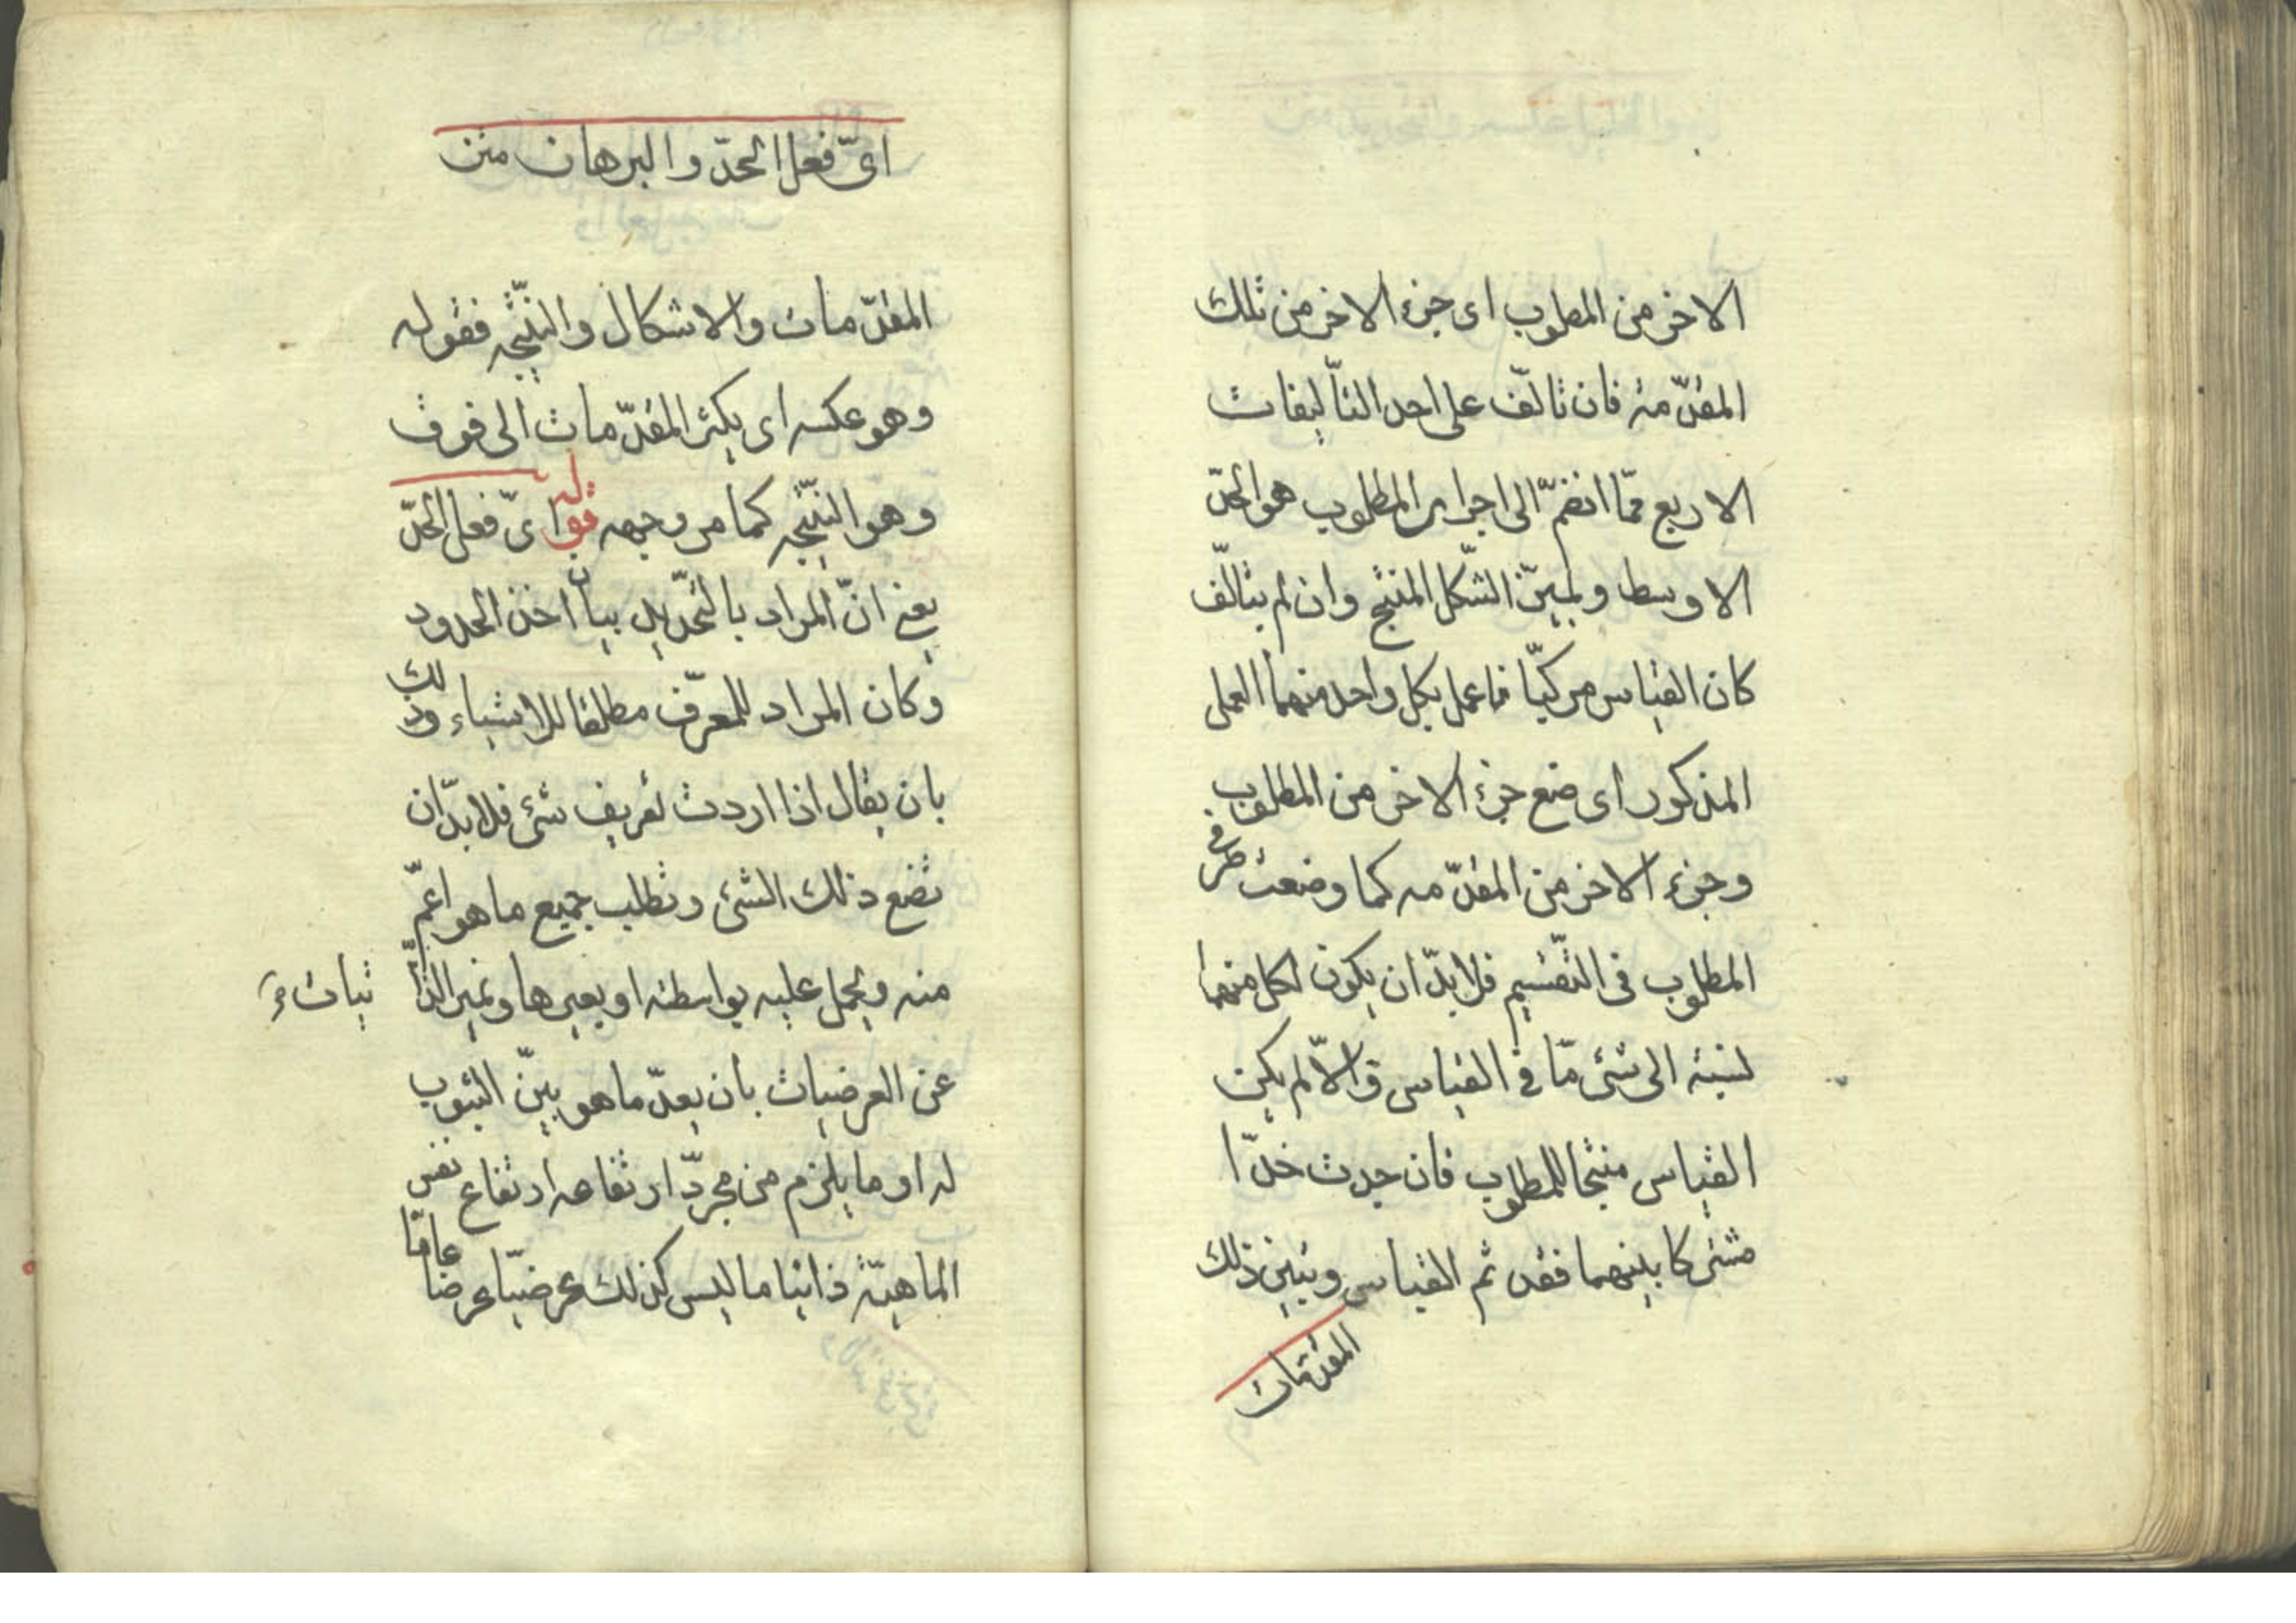 الاخر من المطلوب اى جزء الاخر من تلك
المقدّمة فان تالّف على احد التأليفات
الاربع فمّا انضمّ الى اجزاء المطلوب هو الحدّ
الاوسط وتميّن الشّكل المنتج وان لم يتألّف
كان القياس مركبّا فاعمل بكل واحد منهما العمل
المذكور اى ضع جزء الاخر من المطلوب
وجزء الاخر من المقدّمه كما وضعت طرفى
المطلوب فى التّقسيم فلا بدّ ان يكون لكل منهما
نسبة الى شئ مّا فى القياس والاّ لم يكن
القياس منتجا للمطلوب فان وجدت حدّا
مشتركا بينهما فقد تم القياس وتبين ذلك
المقدّمات
اىّ فعل الحدّ والبرهان متن
المقدّمات والاشكال والنّتيجه فقوله
وهو عكسه اى يكثر المقدّمات الى فوق
وهو النّتيجه كما مر وجهه قوله اىّ فعل الحدّ
يعنى انّ المراد بالتّحديد بيان اخذ الحدود
وكان المراد المعرّف مطلقا للاشياء وذلك
بان يقال اذا اردت تعريف شئ فلا بدّ ان
تضع ذلك الشئ وتطلب جميع ما هو اعمّ
منه ويحمل عليه بواسطة او بغيرها وتميز الذّا تيات
عن العرضيات بان يعدّ ما هو بيّن الثبوت
له او ما يلزم من مجرّد ارتفاعه ارتفاع نفس
الماهيّة ذاتيا ما ليس كذلك عرضيّا عرضا عامّا